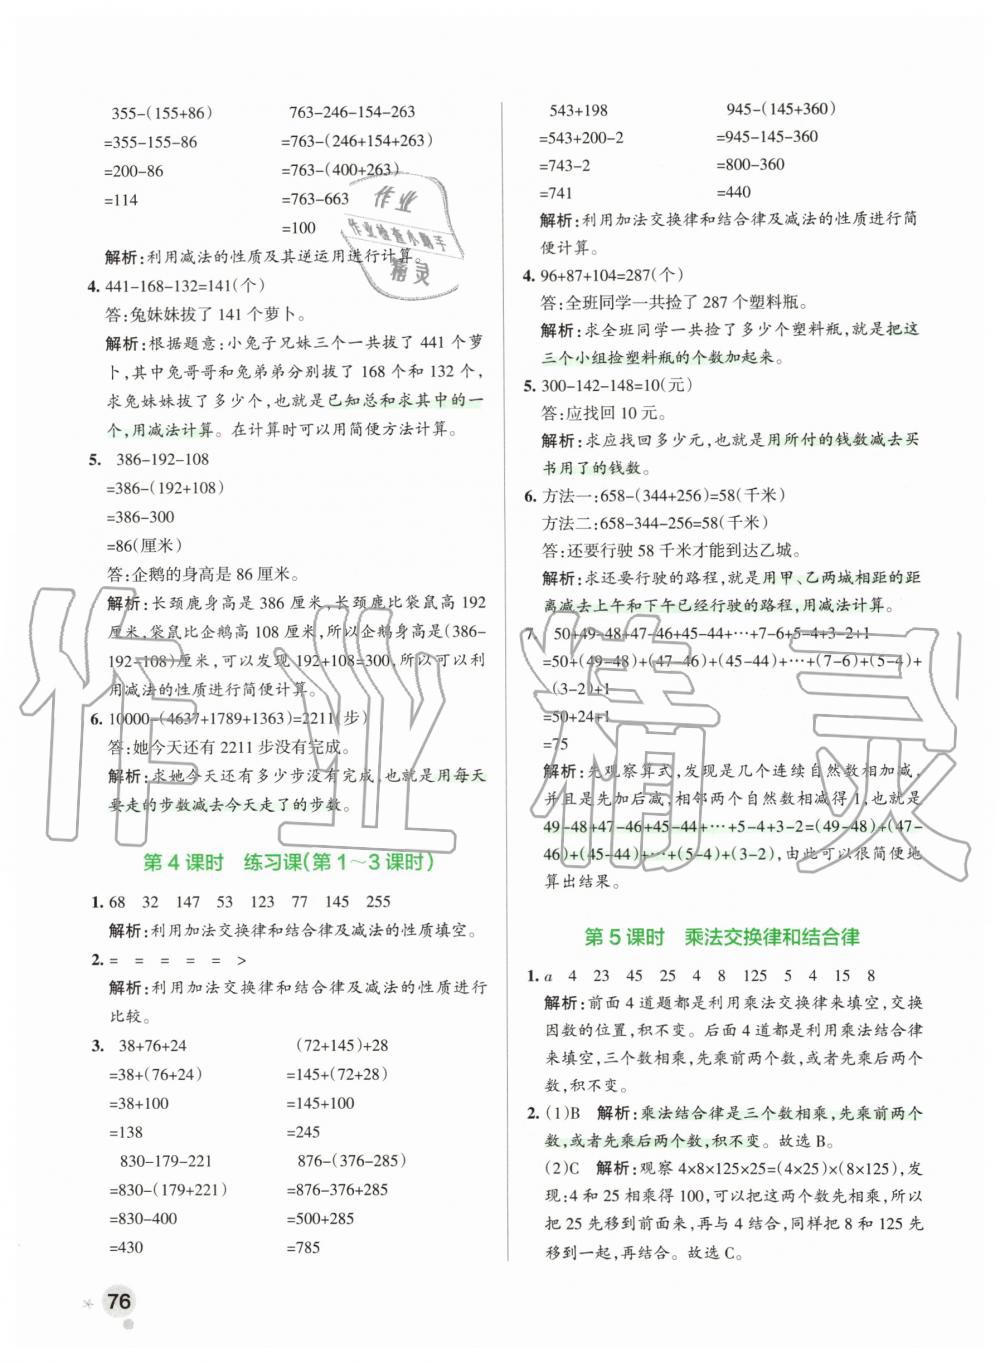 355-(155+86)  763-246-154-263
=355-155-86  =763-(246+154+263)
=200-86  =763-(400+263)
=114  =763-663
=100
解析:利用减法的性质及其逆运用进行计算。
4. 441-168-132=141(个)
答:兔妹妹拔了 141 个萝卜。
解析:根据题意:小兔子兄妹三个一共拔了 441 个萝
卜,其中兔哥哥和兔弟弟分别拔了 168 个和 132 个,
求兔妹妹拔了多少个,也就是已知总和求其中的一
个,用减法计算。在计算时可以用简便方法计算。
5. 386-192-108
=386-(192+108)
=386-300
=86(厘米)
答:企鹅的身高是 86 厘米。
解析:长颈鹿身高是 386 厘米,长颈鹿比袋鼠高 192
厘米,袋鼠比企鹅高 108 厘米,所以企鹅身高是(386-
192-108)厘米,可以发现 192+108=300,所以可以利
用减法的性质进行简便计算。
6. 10000-(4637+1789+1363)=2211(步)
答:她今天还有 2211 步没有完成。
解析:求她今天还有多少步没有完成,也就是用每天
要走的步数减去今天走了的步数。
第 4 课时  练习课(第 1～3 课时)
1. 68  32  147  53  123  77  145  255
解析:利用加法交换律和结合律及减法的性质填空。
2. =  =  =  =  =  >
解析:利用加法交换律和结合律及减法的性质进行
比较。
3. 38+76+24  (72+145)+28
=38+(76+24)  =145+(72+28)
=38+100  =145+100
=138  =245
830-179-221  876-(376-285)
=830-(179+221)  =876-376+285
=830-400  =500+285
=430  =785
76
543+198  945-(145+360)
=543+200-2  =945-145-360
=743-2  =800-360
=741  =440
解析:利用加法交换律和结合律及减法的性质进行简
便计算。
4. 96+87+104=287(个)
答:全班同学一共捡了 287 个塑料瓶。
解析:求全班同学一共捡了多少个塑料瓶,就是把这
三个小组捡塑料瓶的个数加起来。
5. 300-142-148=10(元)
答:应找回 10 元。
解析:求应找回多少元,也就是用所付的钱数减去买
书用了的钱数。
6. 方法一:658-(344+256)=58(千米)
方法二:658-344-256=58(千米)
答:还要行驶 58 千米才能到达乙城。
解析:求还要行驶的路程,就是用甲、乙两城相距的距
离减去上午和下午已经行驶的路程,用减法计算。
7. 50+49-48+47-46+45-44+…+7-6+5-4+3-2+1
=50+(49-48)+(47-46)+(45-44)+…+(7-6)+(5-4)+
(3-2)+1
=50+24+1
=75
解析:先观察算式,发现是几个连续自然数相加减,
并且是先加后减,相邻两个自然数相减得 1,也就是
49-48+47-46+45-44+…+5-4+3-2=(49-48)+(47-
46)+(45-44)+…+(5-4)+(3-2),由此可以很简便地
算出结果。
第 5 课时  乘法交换律和结合律
1. a  4  23  45  25  4  8  125  5  4  15  8
解析:前面 4 道题都是利用乘法交换律来填空,交换
因数的位置,积不变。后面 4 道都是利用乘法结合律
来填空,三个数相乘,先乘前两个数,或者先乘后两个
数,积不变。
2. (1)B  解析:乘法结合律是三个数相乘,先乘前两个
数,或者先乘后两个数,积不变。故选 B。
(2)C  解析:观察 4×8×125×25=(4×25)×(8×125),发
现:4 和 25 相乘得 100,可以把这两个数先相乘,所以
把 25 先移到前面来,再与 4 结合,同样把 8 和 125 先
移到一起,再结合。故选 C。
作业
作业检查小助手
精灵
作业精灵